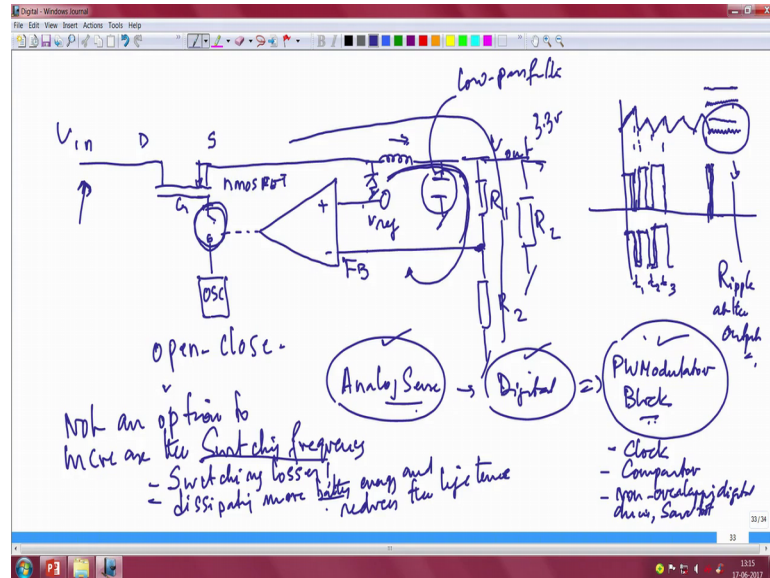 Digital - Windows Journal
File Edit View Insert Actions Tools Help
Low-pass
Vin
D
S
G
nmos
OSC
+
-
Vref
FB
Vout
3.3V
R
R2
R2
t1 t2 t3
Ripple
at the
output
open-close.
Analog Sense
Digital
PWModulator
Block
Not an option to
increase the Switching frequency
- Switching losses!
- dissipating more battery energy and
reduces the life time
- Clock
- Comparator
- Non-overlapping digital
33/34
33
13:15
17-06-2017